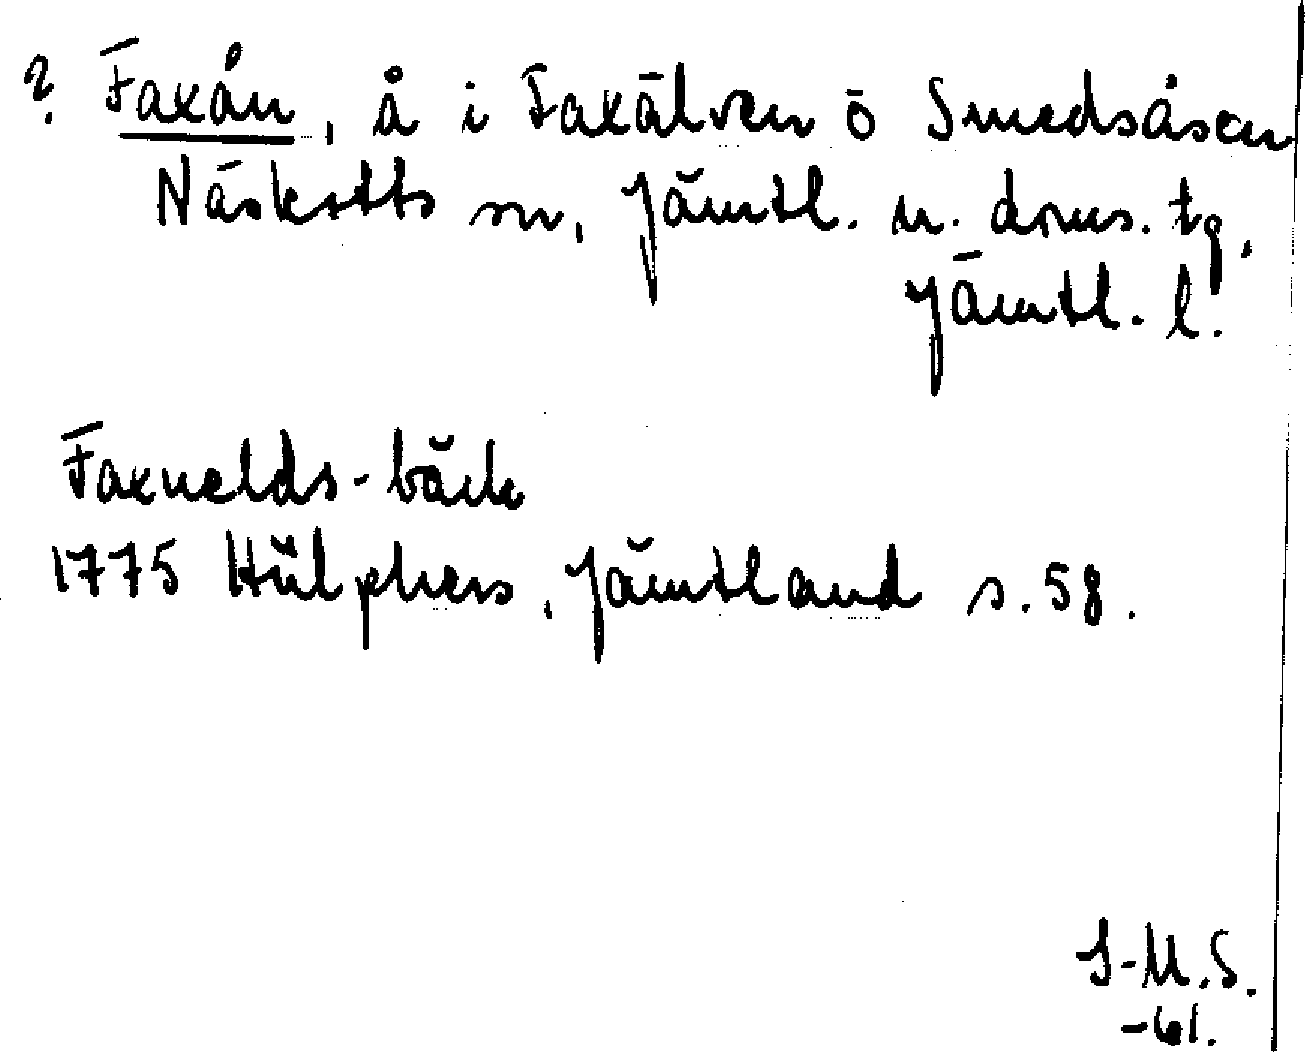 ? Faxån, å i Faxälven ö Smedsåsen
Näskotts sn, Jämtl. n. doms. tg,
Jämtl. l.
Faxnelds-bäck
1775 Hülphers, Jämtland s. 58.
I-M.S.
-61.